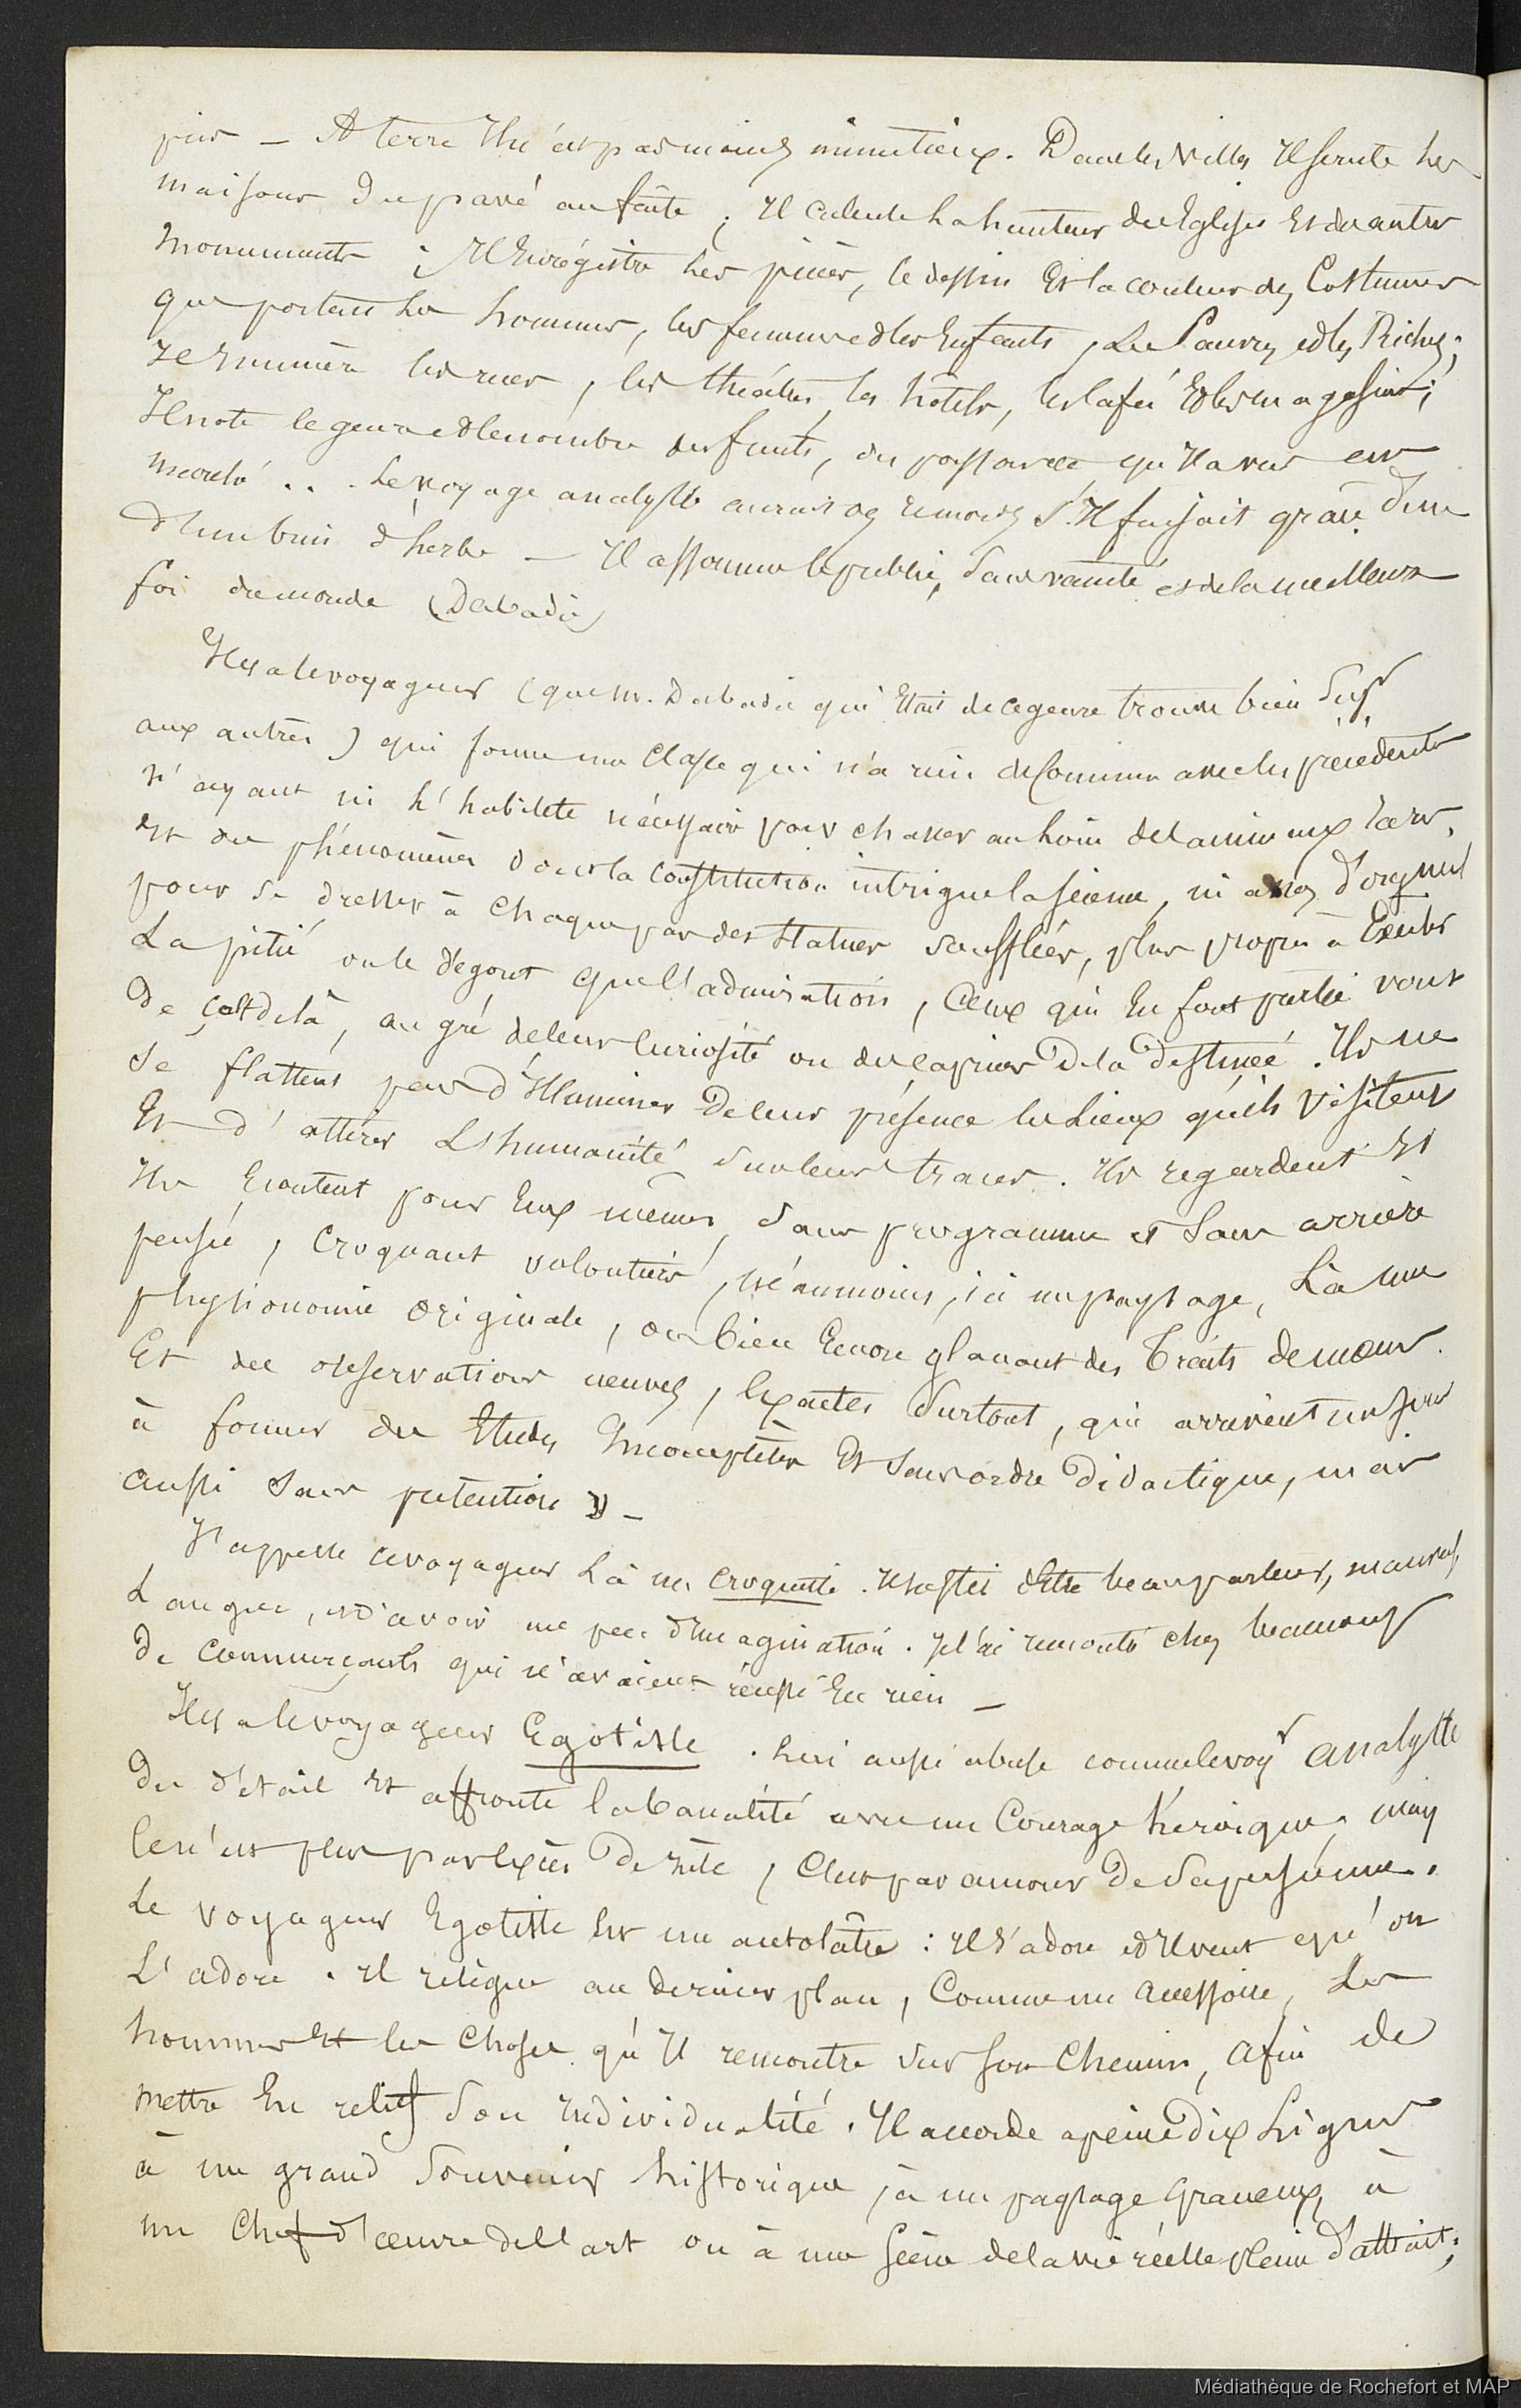 pier — A terre Il n'est pas moins minutieux. Dans les Villes Il scrute les
maisons du pavé au faîte ; Il calcule la hauteur des Eglises Et des autres
monuments ; Il Enrégistre les pièces, le dessin Et la couleur des Costumes
que portent les hommes, les femmes et les Enfants, Les Pauvres et les Riches ;
Il Enumère les rues, les théâtres, les hôtels, les Cafés Et les magasins ;
Il note le genre et le nombre des fruits, des poissons qu'Il a vus au
marché . . . Le voyage analyste aurait des remords S'Il faisait grâce d'un
d'un brin d'herbe — Il assomme le public, sans vanité et de la meilleure
foi du monde (Dabadie)
Il y a le voyageur (que M. Dabadie qui Etait de ce genre trouve bien Supr
aux autres) qui forme une Classe qui n'a rien de Commun avec les précédents
N'ayant ni l'habileté nécessaire pour chasser au loin des animaux rares,
Et des phénomènes dont la Constitution intrigue la science, ni assez d'orgueil
pour se dresser à Chaque pas des statues soufflées, plus propres à Exciter
La pitié ou le dégout que l'admiration, Ceux qui En font partie vont
De çà et de là, au gré de leur Curiosité ou des Caprices De la Destinée. Ils ne
se flattent pas d'Illuminer De leur présence les Lieux qu'ils Visitent
Et d'attirer L'humanité Sur leurs traces. Ils regardent Et
Ils Ecoutent pour Eux mêmes, Sans programme et Sans arrière
pensée, Croquant volontiers, néanmoins, ici un paysage, Là une
physionomie originale, ou bien Encore glanant des Traits de mœurs
Et des observations neuves, Exactes Surtout, qui arrivent un jour
à former des Etudes Incomplètes Et Sans ordre Didactique, mais
aussi Sans prétention » —
J'appelle ce voyageur Là un Croquiste. Il doit Etre beau parleur, mauvais
Langue, et d'avoir un peu d'Imagination. Je l'ai rencontré chez beaucoup
De Commerçants qui n'avaient réussi En rien —
Il y a le voyageur Egotiste. Lui aussi abuse comme le voyr analyste
Du détail Et affronte la banalité avec un Courage héroique, mais
Ce n'est plus par Excès De zèle, C'est par amour De Sa personne.
Le voyageur Egotiste Est un autolâtre : Il s'adore et Il veut qu'on
L'adore. Il relègue au dernier plan, Comme un accessoire, Les
hommes Et les Choses qu'Il rencontre sur son Chemin, afin de
mettre En relief Son Individualité. Il accorde à peine Dix Lignes
à un grand Souvenir historique, à un paysage Gracieux, à
un Chef d'œuvre de l'art ou à une scène de la vie réelle pleine d'attrait ;
Médiathèque de Rochefort et MAP